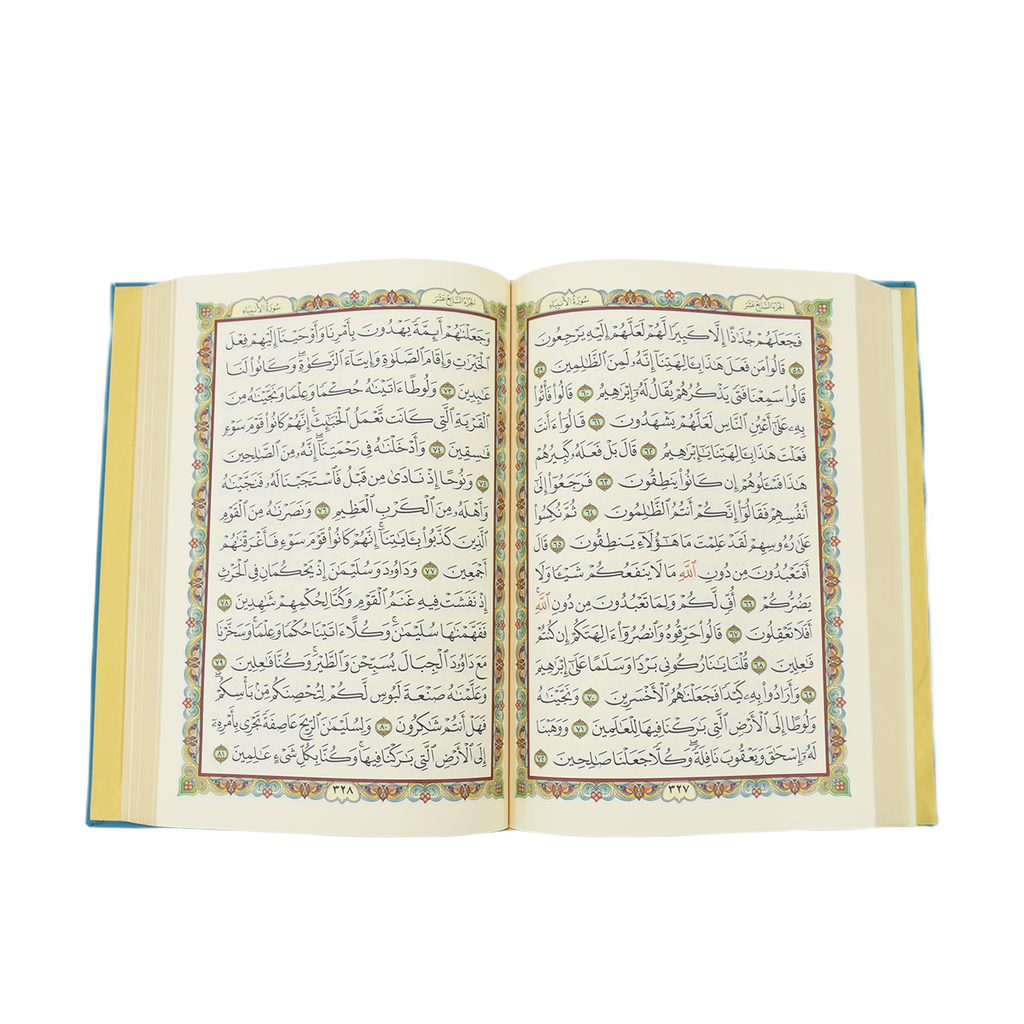 الجزء السابع عشر
سورة الأنبياء
فَجَعَلَهُمْ جُذَٰذًا إِلَّا كَبِيرًا لَّهُمْ لَعَلَّهُمْ إِلَيْهِ يَرْجِعُونَ
٥٨ قَالُوا۟ مَن فَعَلَ هَٰذَا بِـَٔالِهَتِنَآ إِنَّهُۥ لَمِنَ ٱلظَّٰلِمِينَ ٥٩
قَالُوا۟ سَمِعْنَا فَتًى يَذْكُرُهُمْ يُقَالُ لَهُۥٓ إِبْرَٰهِيمُ ٦٠ قَالُوا۟ فَأْتُوا۟
بِهِۦ عَلَىٰٓ أَعْيُنِ ٱلنَّاسِ لَعَلَّهُمْ يَشْهَدُونَ ٦١ قَالُوٓا۟ ءَأَنتَ
فَعَلْتَ هَٰذَا بِـَٔالِهَتِنَا يَٰٓإِبْرَٰهِيمُ ٦٢ قَالَ بَلْ فَعَلَهُۥ كَبِيرُهُمْ
هَٰذَا فَسْـَٔلُوهُمْ إِن كَانُوا۟ يَنطِقُونَ ٦٣ فَرَجَعُوٓا۟ إِلَىٰٓ
أَنفُسِهِمْ فَقَالُوٓا۟ إِنَّكُمْ أَنتُمُ ٱلظَّٰلِمُونَ ٦٤ ثُمَّ نُكِسُوا۟
عَلَىٰ رُءُوسِهِمْ لَقَدْ عَلِمْتَ مَا هَٰٓؤُلَآءِ يَنطِقُونَ ٦٥ قَالَ
أَفَتَعْبُدُونَ مِن دُونِ ٱللَّهِ مَا لَا يَنفَعُكُمْ شَيْـًٔا وَلَا
يَضُرُّكُمْ ٦٦ أُفٍّ لَّكُمْ وَلِمَا تَعْبُدُونَ مِن دُونِ ٱللَّهِ ۖ
أَفَلَا تَعْقِلُونَ ٦٧ قَالُوا۟ حَرِّقُوهُ وَٱنصُرُوٓا۟ ءَالِهَتَكُمْ إِن كُنتُمْ
فَٰعِلِينَ ٦٨ قُلْنَا يَٰنَارُ كُونِى بَرْدًا وَسَلَٰمًا عَلَىٰٓ إِبْرَٰهِيمَ
٦٩ وَأَرَادُوا۟ بِهِۦ كَيْدًا فَجَعَلْنَٰهُمُ ٱلْأَخْسَرِينَ ٧٠ وَنَجَّيْنَٰهُ
وَلُوطًا إِلَى ٱلْأَرْضِ ٱلَّتِى بَٰرَكْنَا فِيهَا لِلْعَٰلَمِينَ ٧١ وَوَهَبْنَا
لَهُۥٓ إِسْحَٰقَ وَيَعْقُوبَ نَافِلَةً ۖ وَكُلًّا جَعَلْنَا صَٰلِحِينَ ٧٢
٣٢٧
الجزء السابع عشر
سورة الأنبياء
وَجَعَلْنَٰهُمْ أَئِمَّةً يَهْدُونَ بِأَمْرِنَا وَأَوْحَيْنَآ إِلَيْهِمْ فِعْلَ
ٱلْخَيْرَٰتِ وَإِقَامَ ٱلصَّلَوٰةِ وَإِيتَآءَ ٱلزَّكَوٰةِ ۖ وَكَانُوا۟ لَنَا
عَٰبِدِينَ ٧٣ وَلُوطًا ءَاتَيْنَٰهُ حُكْمًا وَعِلْمًا وَنَجَّيْنَٰهُ مِنَ
ٱلْقَرْيَةِ ٱلَّتِى كَانَت تَّعْمَلُ ٱلْخَبَٰٓئِثَ ۗ إِنَّهُمْ كَانُوا۟ قَوْمَ سَوْءٍ
فَٰسِقِينَ ٧٤ وَأَدْخَلْنَٰهُ فِى رَحْمَتِنَآ ۖ إِنَّهُۥ مِنَ ٱلصَّٰلِحِينَ
٧٥ وَنُوحًا إِذْ نَادَىٰ مِن قَبْلُ فَٱسْتَجَبْنَا لَهُۥ فَنَجَّيْنَٰهُ
وَأَهْلَهُۥ مِنَ ٱلْكَرْبِ ٱلْعَظِيمِ ٧٦ وَنَصَرْنَٰهُ مِنَ ٱلْقَوْمِ
ٱلَّذِينَ كَذَّبُوا۟ بِـَٔايَٰتِنَآ ۚ إِنَّهُمْ كَانُوا۟ قَوْمَ سَوْءٍ فَأَغْرَقْنَٰهُمْ
أَجْمَعِينَ ٧٧ وَدَاوُۥدَ وَسُلَيْمَٰنَ إِذْ يَحْكُمَانِ فِى ٱلْحَرْثِ
إِذْ نَفَشَتْ فِيهِ غَنَمُ ٱلْقَوْمِ وَكُنَّا لِحُكْمِهِمْ شَٰهِدِينَ ٧٨
فَفَهَّمْنَٰهَا سُلَيْمَٰنَ ۚ وَكُلًّا ءَاتَيْنَا حُكْمًا وَعِلْمًا ۚ وَسَخَّرْنَا
مَعَ دَاوُۥدَ ٱلْجِبَالَ يُسَبِّحْنَ وَٱلطَّيْرَ ۚ وَكُنَّا فَٰعِلِينَ ٧٩
وَعَلَّمْنَٰهُ صَنْعَةَ لَبُوسٍ لَّكُمْ لِتُحْصِنَكُم مِّنۢ بَأْسِكُمْ ۖ
فَهَلْ أَنتُمْ شَٰكِرُونَ ٨٠ وَلِسُلَيْمَٰنَ ٱلرِّيحَ عَاصِفَةً تَجْرِى بِأَمْرِهِۦٓ
إِلَى ٱلْأَرْضِ ٱلَّتِى بَٰرَكْنَا فِيهَا ۚ وَكُنَّا بِكُلِّ شَىْءٍ عَٰلِمِينَ ٨١
٣٢٨